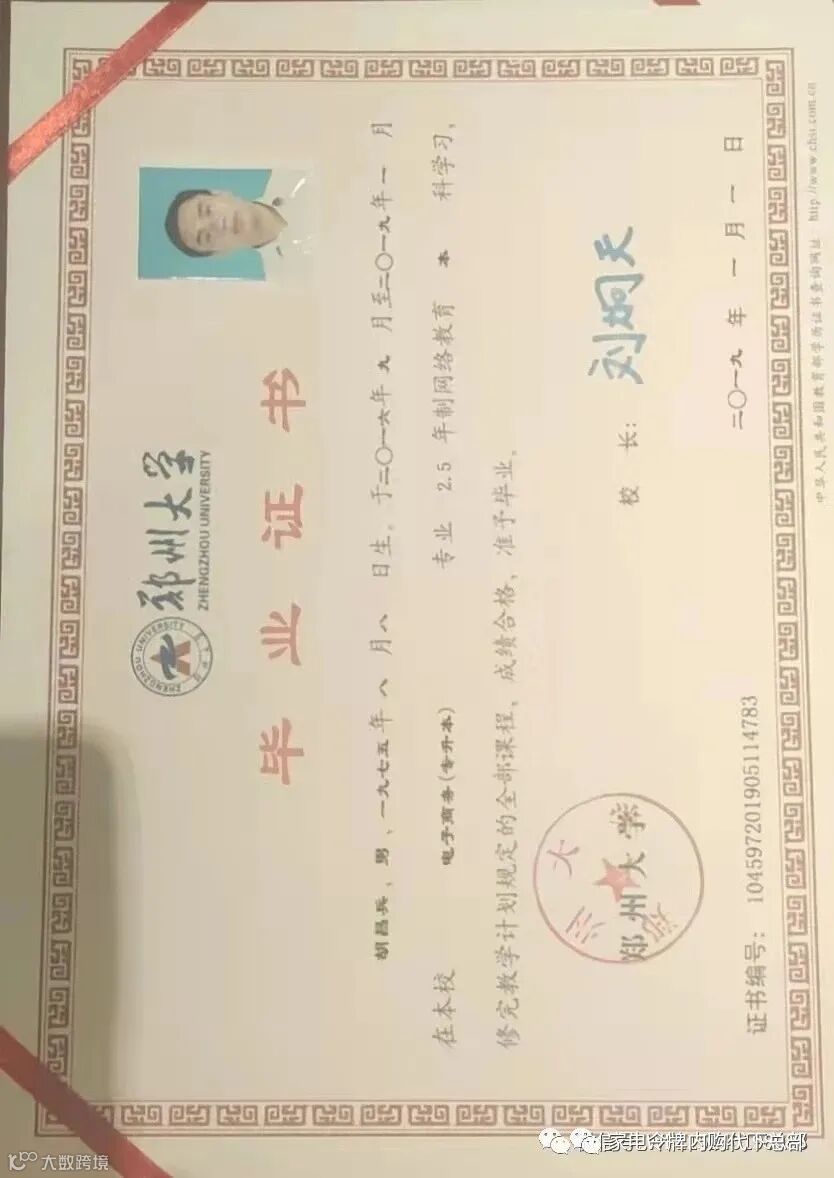 郑州大学
ZHENGZHOU UNIVERSITY
ZHENGZHOU UNIVERSITY
毕业证书
胡昌兵，男，一九七五年八月八日生。于二〇一六年九月至二〇一九年一月
在本校 电子商务(专升本) 专业 2.5 年制网络教育 本 科学习，
修完教学计划规定的全部课程，成绩合格，准予毕业。
郑州大学
郑州大
校 长：
刘炯天
证书编号：104597201905114783
二〇一九 年 一 月 一 日
中华人民共和国教育部学历证书查询网址：http://www.chsi.com.cn
家电令牌内购代下总部
大数跨境